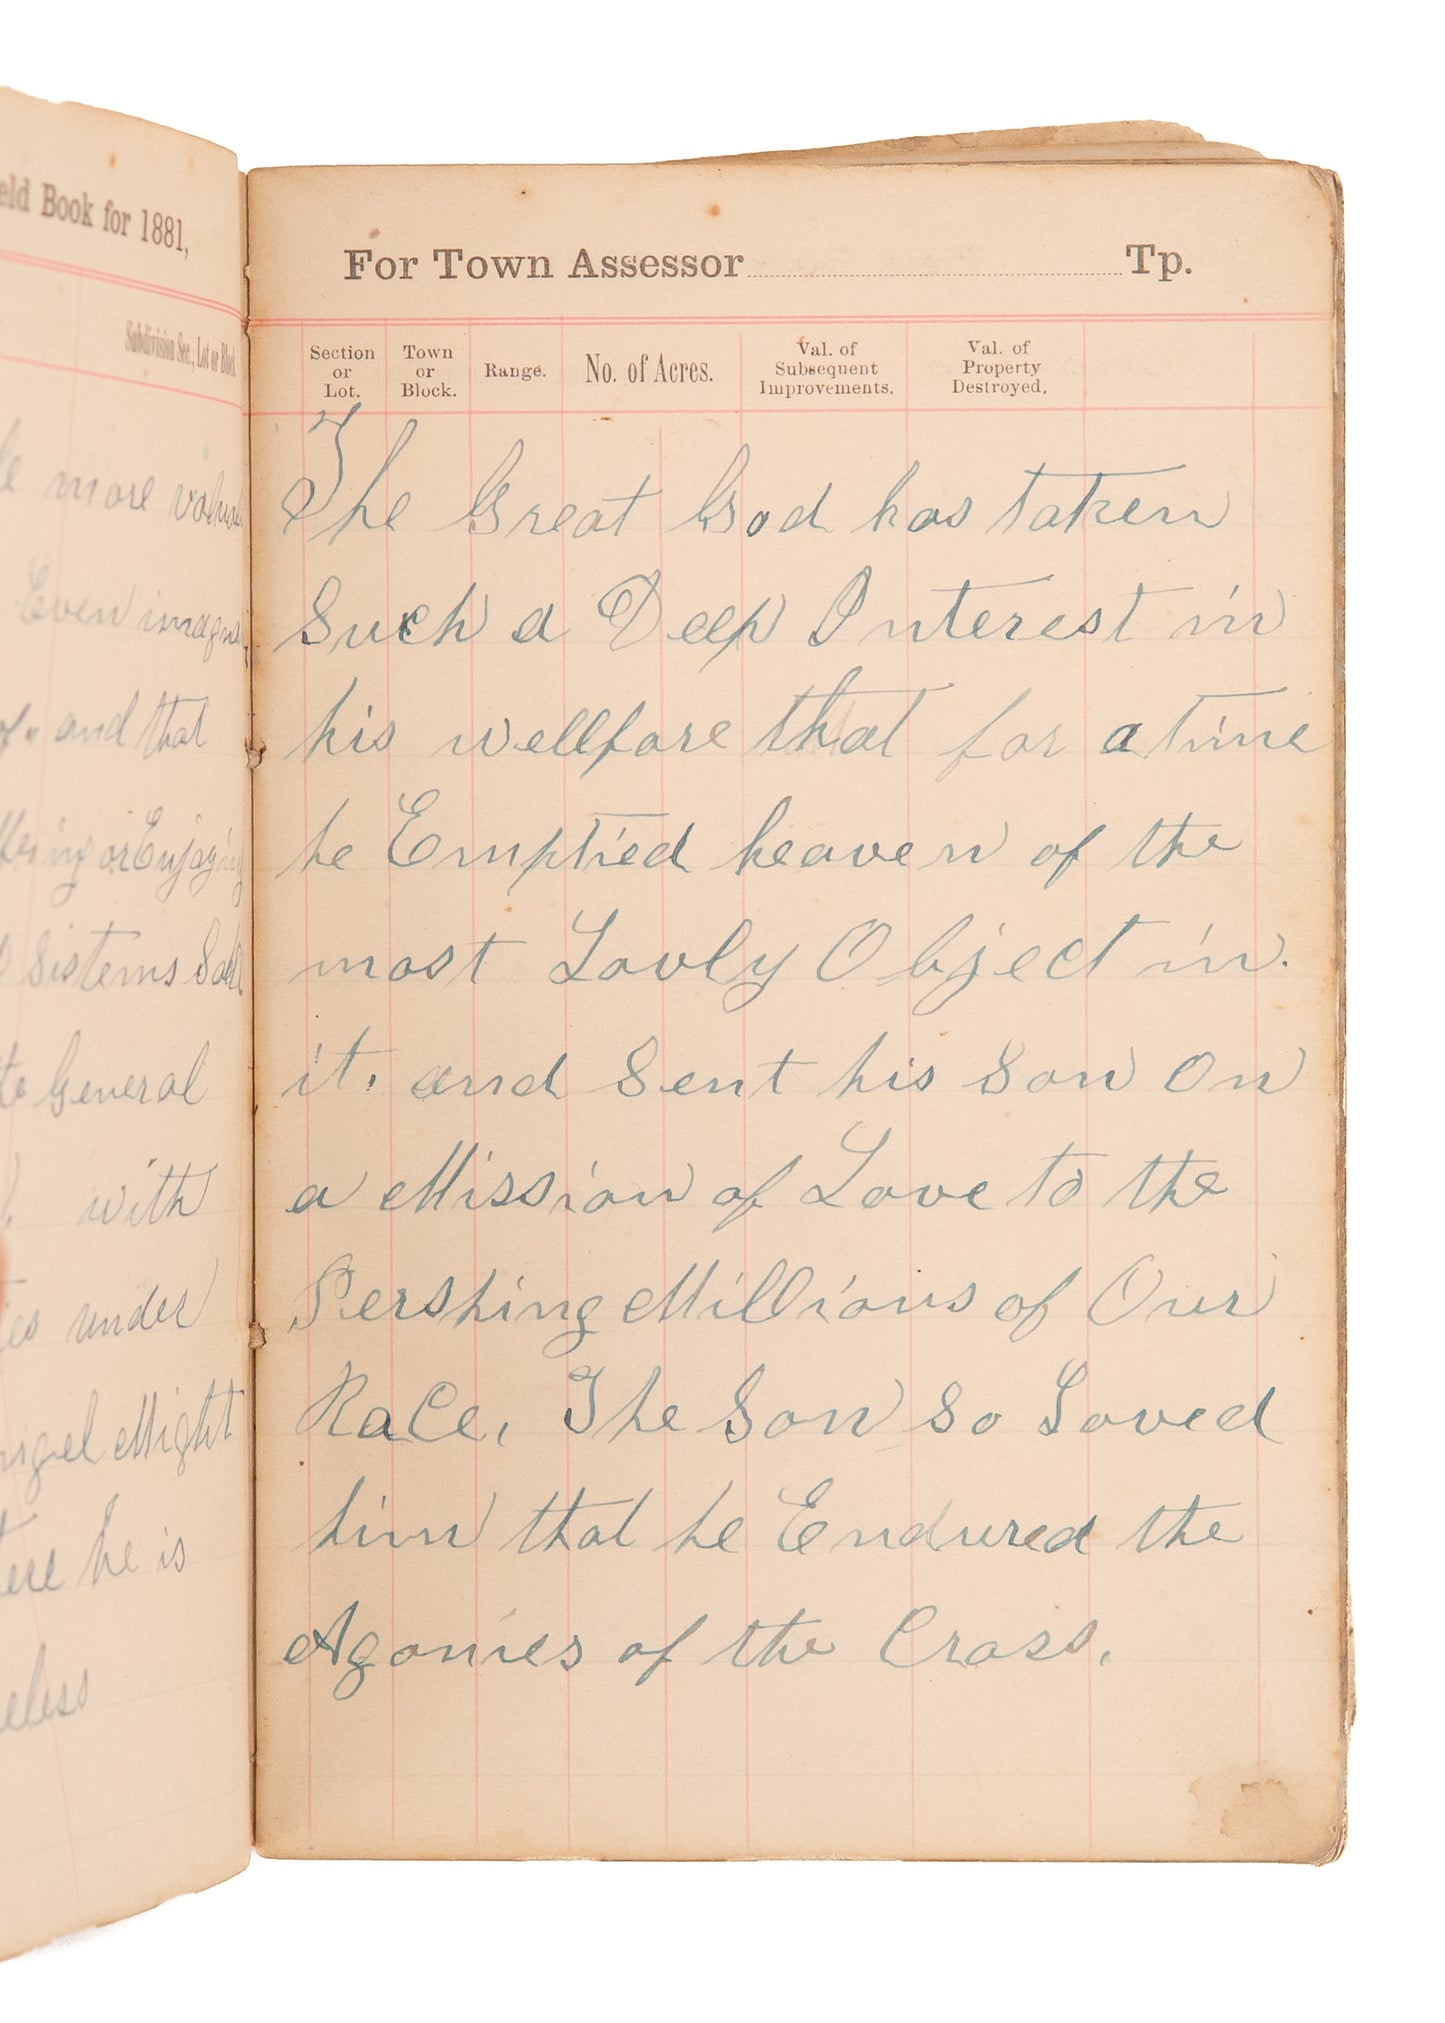 Book for 1881,
Subdivision Sec., Lot or Block.
more
Even
and that
or Enjoying
Sistems
General
with
under
Might
he is
For Town Assessor Tp.
Section or Lot.
Town or Block.
Range.
No. of Acres.
Val. of Subsequent Improvements.
Val. of Property Destroyed.
The Great God has taken
Such a Deep Interest in
his wellfare that for a time
he Emptied heaven of the
most Lovly Object in.
it, and Sent his Son On
a Mission of Love to the
Pershing Millions of Our
Race, The Son So Loved
him that he Endured the
Agonies of the Cross,